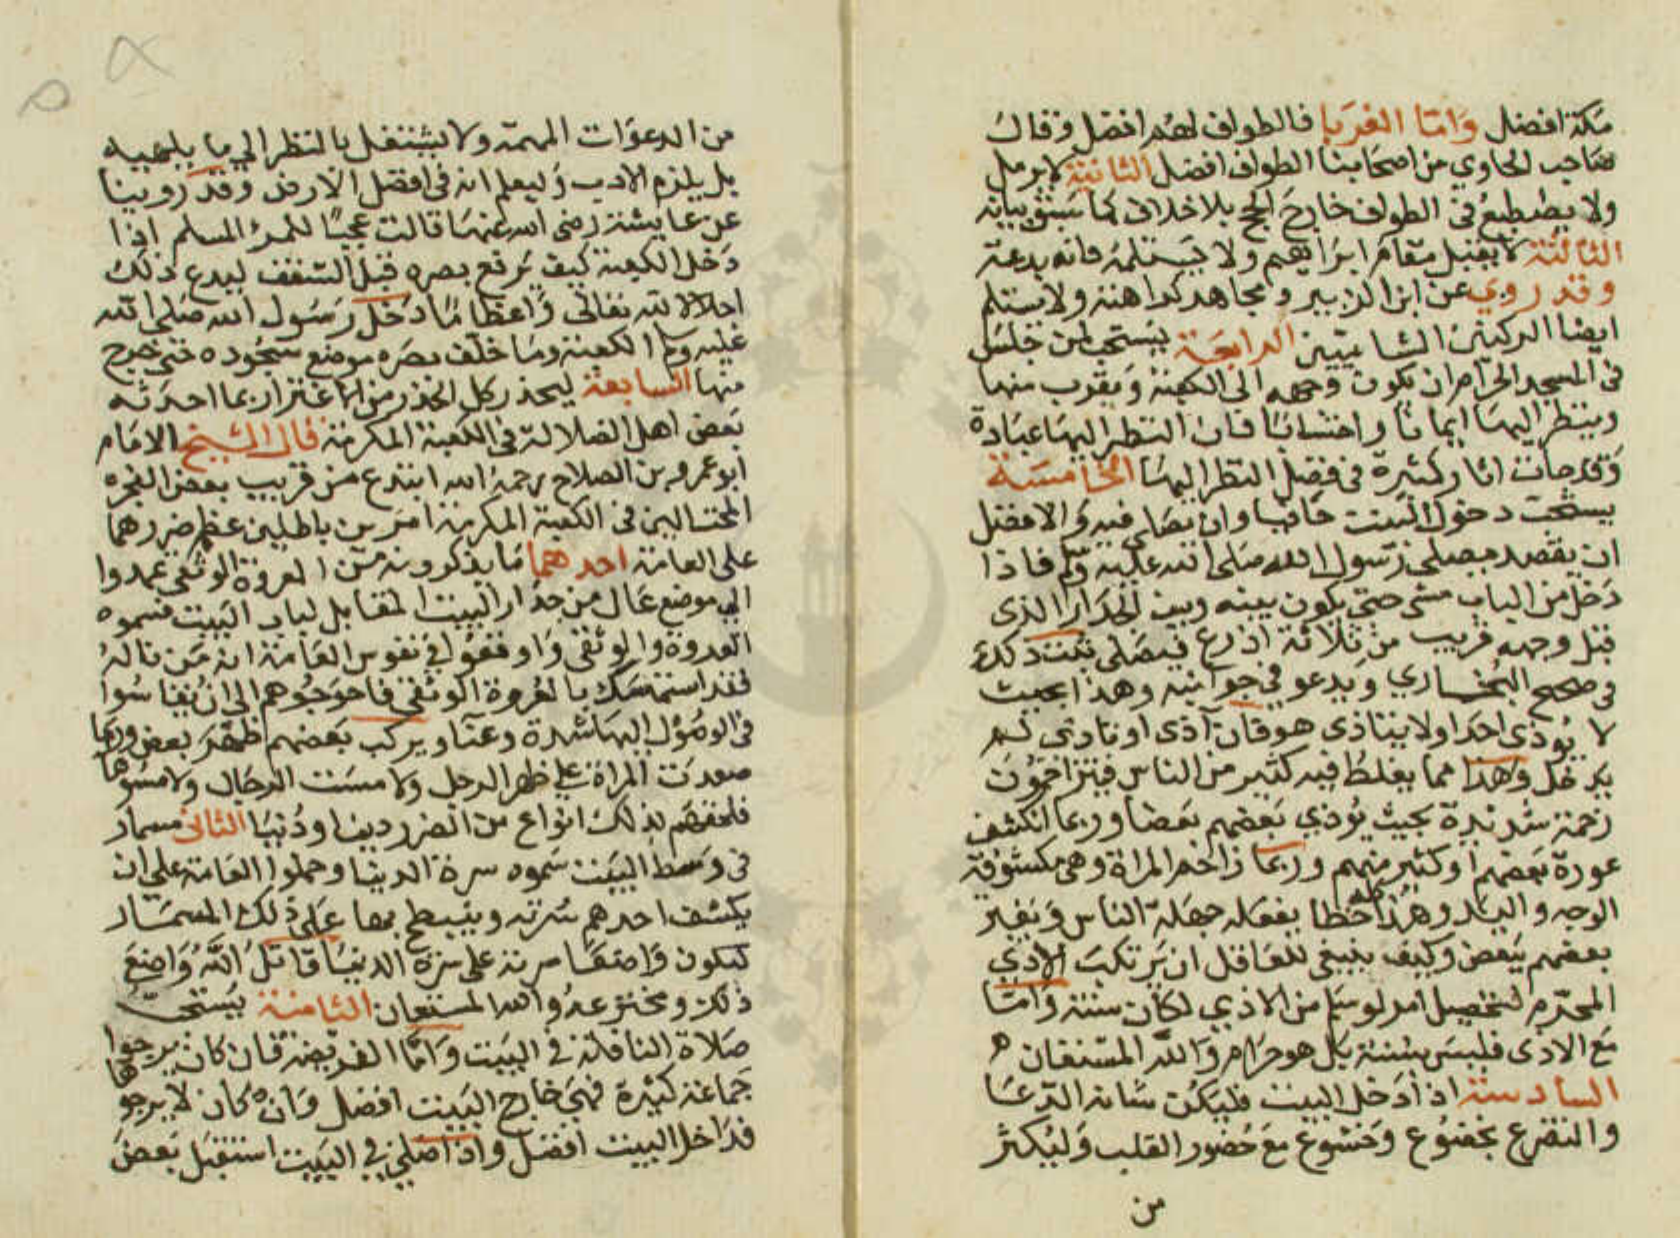 مكة افضل واما الغربا فالطواف لهم افضل وقال
صاحب الحاوي من اصحابنا الطواف افضل الثانية لا يرمل
ولا يضطبع في الطواف خارج الحج بلا خلاف كما سبق بيانه
الثالثة لا يقبل مقام ابراهيم ولا يستلمه فانه بدعة
وقد روي عن ابن الزبير ومجاهد كراهته ولا يستلم
ايضا الركنين الشاميين الرابعة يستحب لمن جلس
في المسجد الحرام ان يكون وجهه الى الكعبة ويقرب منها
وينظر اليها ايمانا واحتسابا فان النظر اليها عبادة
وقد جات اثار كثيرة في فضل النظر اليها الخامسة
يستحب دخول البيت حافيا وان يصلي فيه والافضل
ان يقصد مصلى رسول الله صلى الله عليه وسلم فاذا
دخل من الباب مشى حتى يكون بينه وبين الجدار الذى
قبل وجهه قريب من ثلاثة اذرع فيصلى ثبت ذلك
في صحيح البخاري ويدعو في جوانبه وهذا بحيث
لا يوذي احدا ولا يتاذى هو فان آذى او تاذى لم
يدخل وهذا مما يغلط فيه كثير من الناس فيتزاحمون
زحمة شديدة بحيث يوذي بعضهم بعضا وربما انكشف
عورة بعضهم او كثير منهم وربما زاحم المراة وهى مكشوفة
الوجه واليد وهذا كله خطا يفعله جهلة الناس ويغير
بعضهم ببعض وكيف ينبغي للعاقل ان يرتكب الاذي
المحرم لتحصيل امر لو سلم من الاذي لكان سنة واما
مع الاذى فليس بسنة بل هو حرام والله المستعان ه
السادسة اذا دخل البيت فليكن شانه الدعا
والتضرع بخضوع وخشوع مع حضور القلب وليكثر
من
من الدعوات المهمة ولا يشتغل بالنظر الي ما يلهيه
بل يلزم الادب وليعلم انه في افضل الارض وقد روينا
عن عايشة رضي الله عنها قالت عجبا للمرء المسلم اذا
دخل الكعبة كيف يرفع بصره قبل السقف ليدع ذلك
اجلالا لله تعالى واعظاما دخل رسول الله صلى الله
عليه وسلم الكعبة وما خلف بصره موضع سجوده حتى خرج
منها السابعة ليحذر كل الحذر من الاغترار بما احدثه
بعض اهل الضلالة في الكعبة المكرمة قال الشيخ الامام
ابو عمرو بن الصلاح رحمه الله ابتدع من قريب بعض الفجرة
المحتالين في الكعبة المكرمة امرين باطلين عظم ضررهما
على العامة احدهما ما يذكرونه من العروة الوثقى عمدوا
الي موضع عال من جدار البيت المقابل لباب البيت فسموه
العروة الوثقى واوقعوا في نفوس العامة ان من ناله
فقد استمسك بالعروة الوثقى فاحوجوهم الى ان يقاسوا
في الوصول اليها شدة وعنا ويركب بعضهم ظهر بعض وربما
صعدت المراة على ظهر الرجل ولامست الرجال ولامسوها
فلحقهم بذلك انواع من الضرر دينا ودنيا الثاني مسمار
في وسط البيت سموه سرة الدنيا وحملوا العامة على ان
يكشف احدهم سرته وينبطح بها على ذلك المسمار
ليكون واضعا سرته على سرة الدنيا قاتل الله واضع
ذلك ومخترعه والله المستعان الثامنة يستحب
صلاة النافلة في البيت واما الفريضة فان كان يرجوا لها
جماعة كثيرة فهي خارج البيت افضل وان كان لا يرجو
فداخل البيت افضل واذا صلي في البيت استقبل بعض